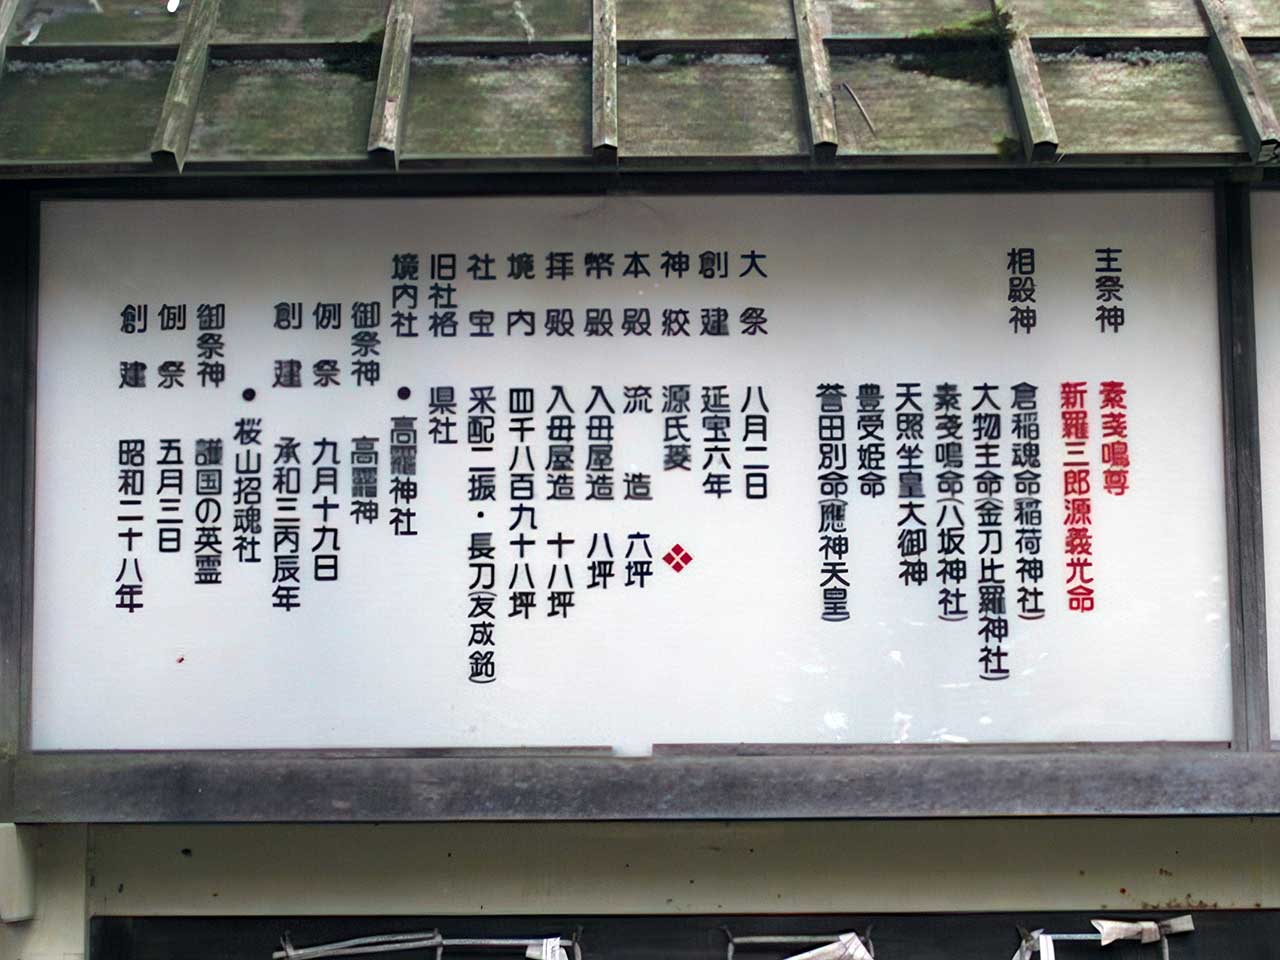 主祭神 素戔鳴尊
新羅三郎源義光命
相殿神 倉稲魂命(稲荷神社)
大物主命(金刀比羅神社)
素戔鳴命(八坂神社)
天照坐皇大御神
豊受姫命
誉田別命(應神天皇)
大祭 八月二日
創建 延宝六年
神紋 源氏菱
本殿 流造 六坪
幣殿 入母屋造 八坪
拝殿 入母屋造 十八坪
境内 四千八百九十八坪
社宝 采配二振・長刀(友成銘)
旧社格 県社
境内社 ●高龗神社
御祭神 高龗神
例祭 九月十九日
創建 承和三丙辰年
●桜山招魂社
御祭神 護国の英霊
例祭 五月三日
創建 昭和二十八年